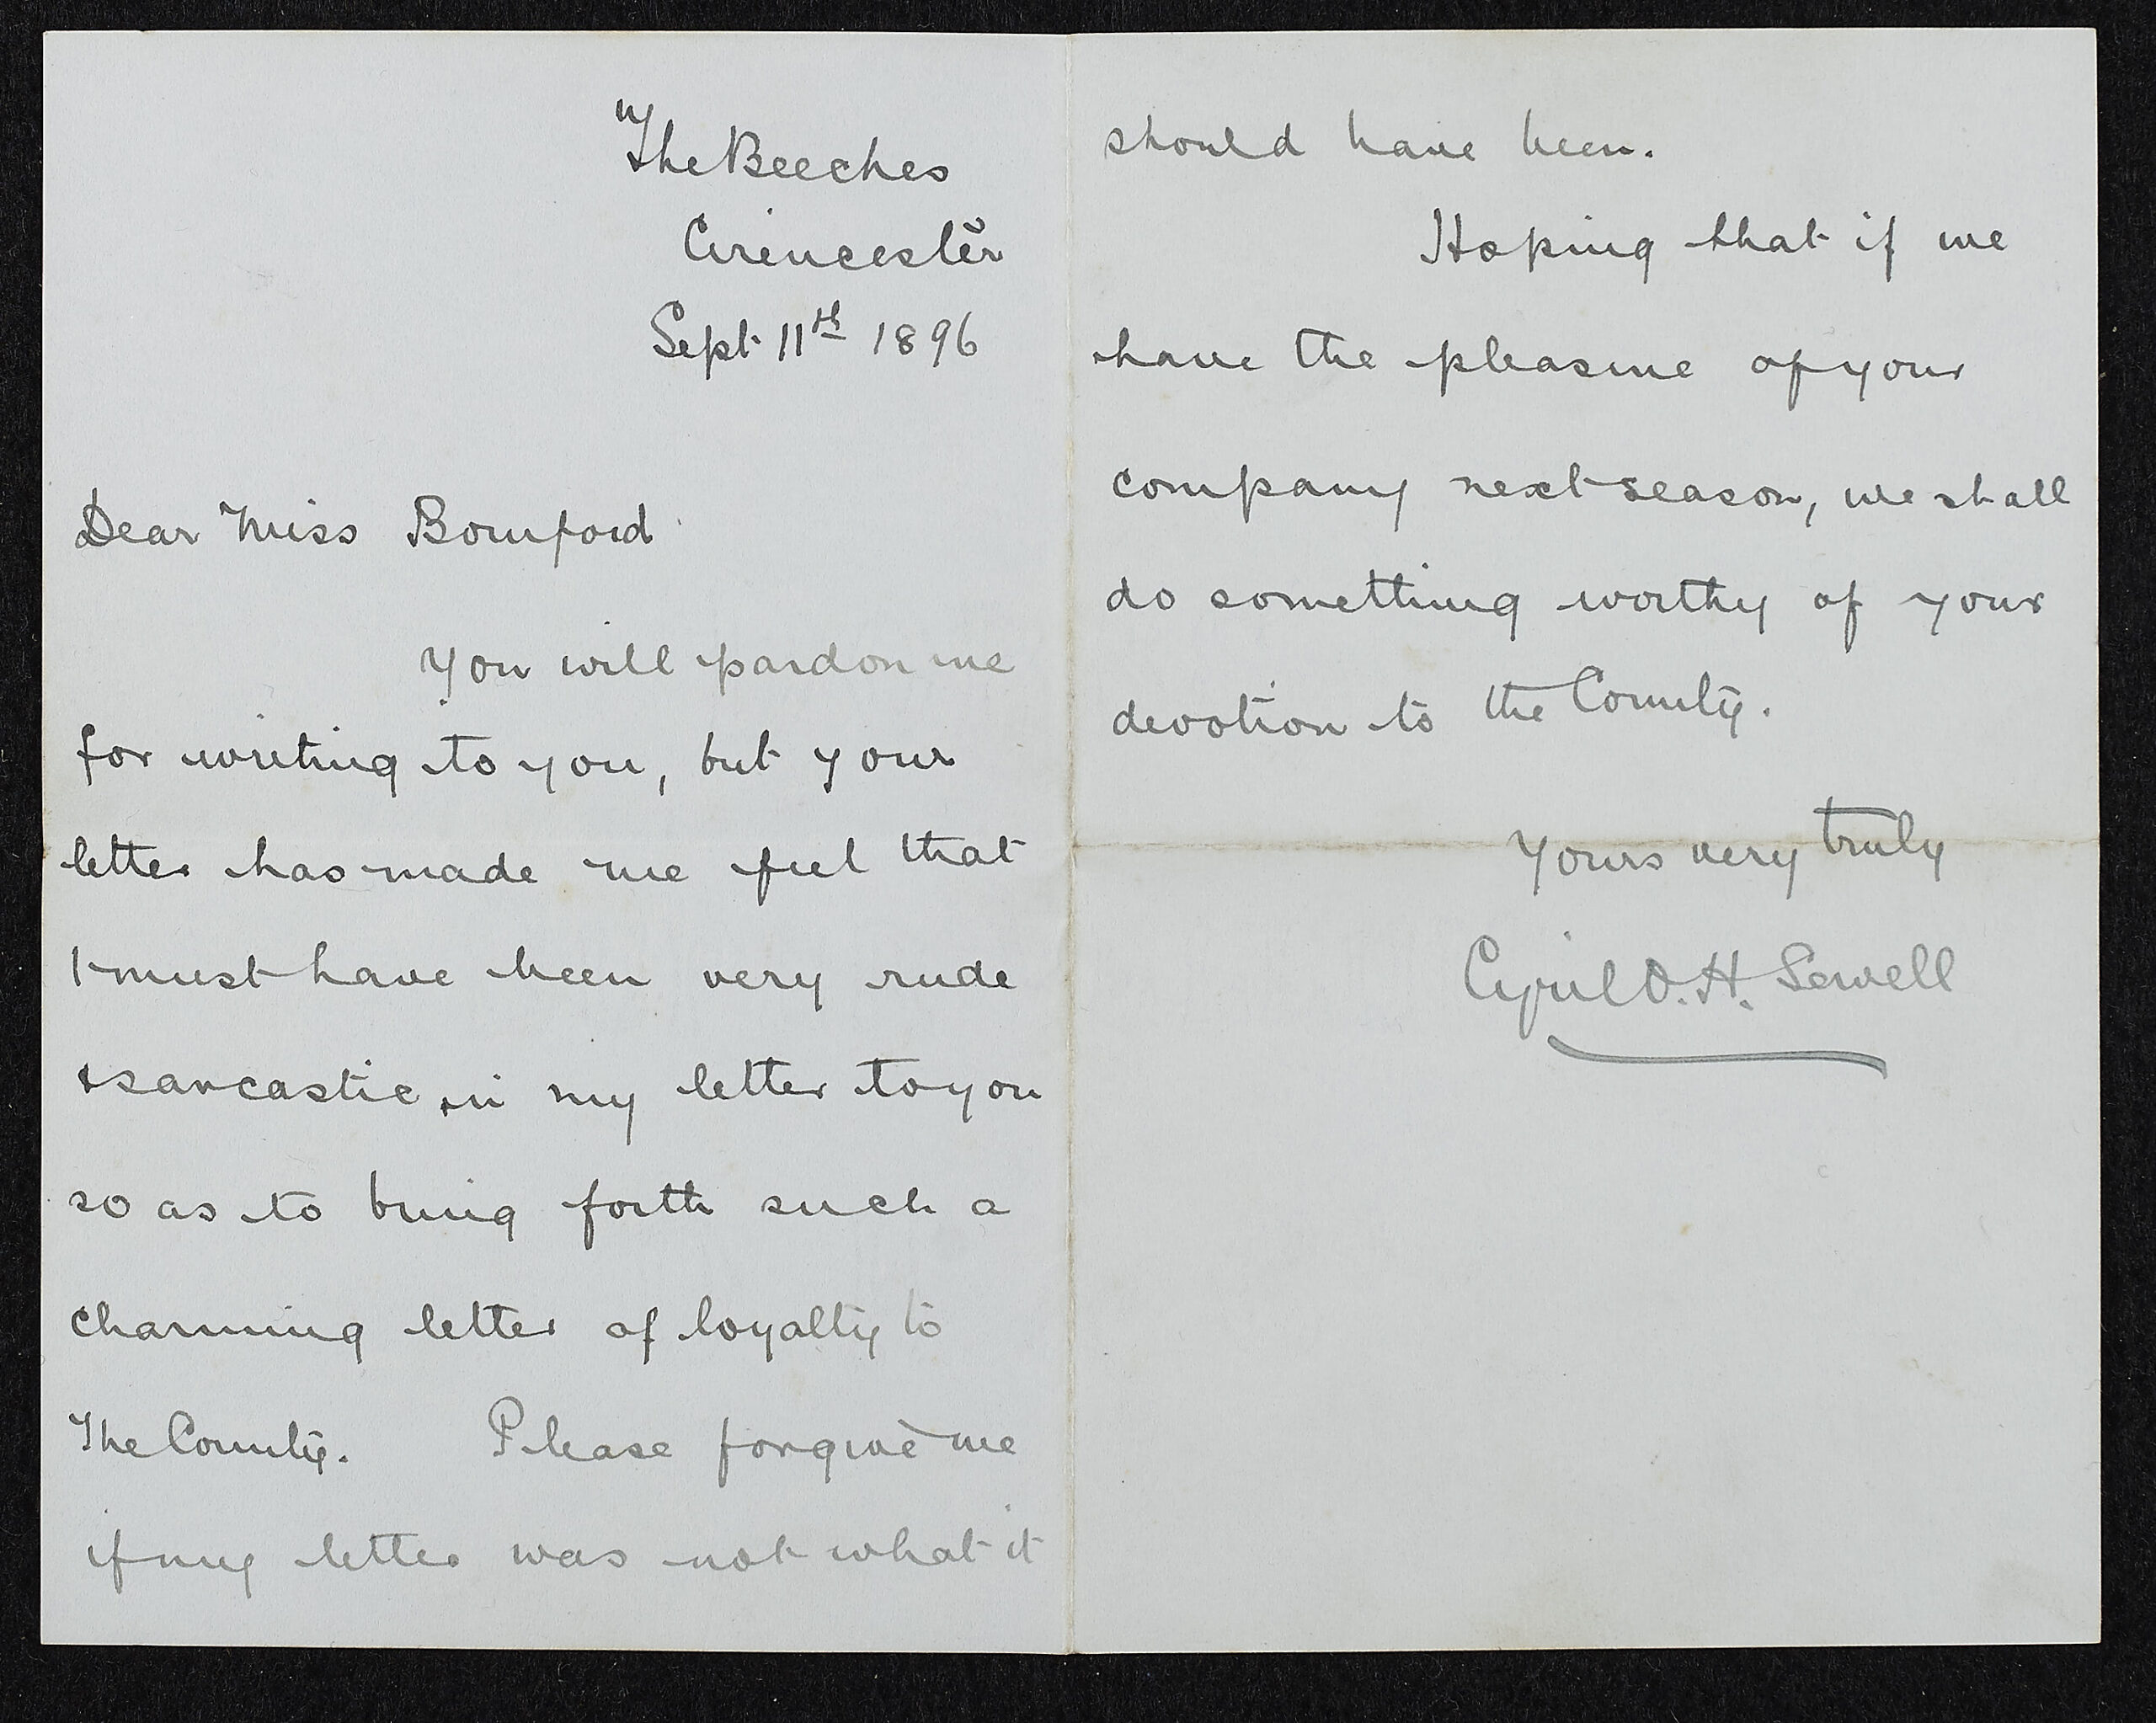 "The Beeches
Cirencester
Sept 11th 1896
Dear Miss Bomford
You will pardon me
for writing to you, but your
letter has made me feel that
I must have been very rude
& sarcastic, in my letter to you
so as to bring forth such a
charming letter of loyalty to
The County. Please forgive me
if my letter was not what it
should have been.
Hoping that if we
have the pleasure of your
company next season, we shall
do something worthy of your
devotion to the County.
Yours very truly
Cyril O. H. Sewell